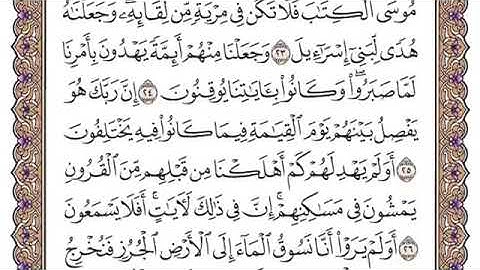 مُوسَى ٱلْكِتَـٰبَ فَلَا تَكُن فِى مِرْيَةٍ مِّن لِّقَآئِهِۦ ۖ وَجَعَلْنَـٰهُ
هُدًى لِّبَنِىٓ إِسْرَٰٓءِيلَ ٢٣ وَجَعَلْنَا مِنْهُمْ أَئِمَّةً يَهْدُونَ بِأَمْرِنَا
لَمَّا صَبَرُوا۟ ۖ وَكَانُوا۟ بِـَٔايَـٰتِنَا يُوقِنُونَ ٢٤ إِنَّ رَبَّكَ هُوَ
يَفْصِلُ بَيْنَهُمْ يَوْمَ ٱلْقِيَـٰمَةِ فِيمَا كَانُوا۟ فِيهِ يَخْتَلِفُونَ
٢٥ أَوَلَمْ يَهْدِ لَهُمْ كَمْ أَهْلَكْنَا مِن قَبْلِهِم مِّنَ ٱلْقُرُونِ
يَمْشُونَ فِى مَسَـٰكِنِهِمْ ۚ إِنَّ فِى ذَٰلِكَ لَـَٔايَـٰتٍ ۖ أَفَلَا يَسْمَعُونَ
٢٦ أَوَلَمْ يَرَوْا۟ أَنَّا نَسُوقُ ٱلْمَآءَ إِلَى ٱلْأَرْضِ ٱلْجُرُزِ فَنُخْرِجُ